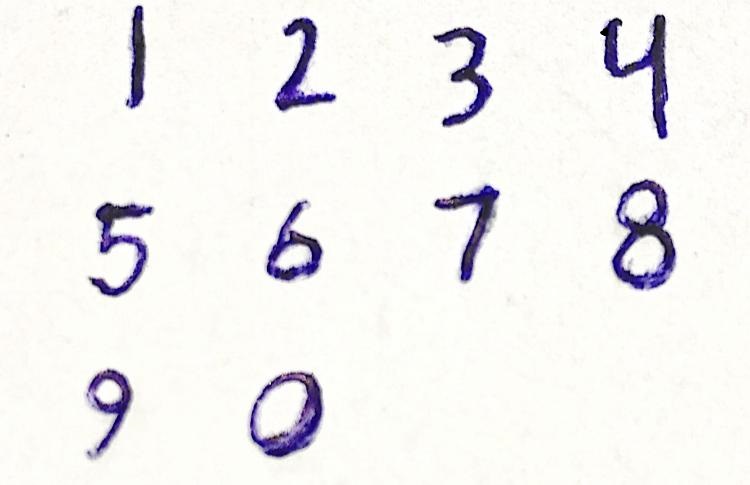 1 2 3 4
5 6 7 8
9 0